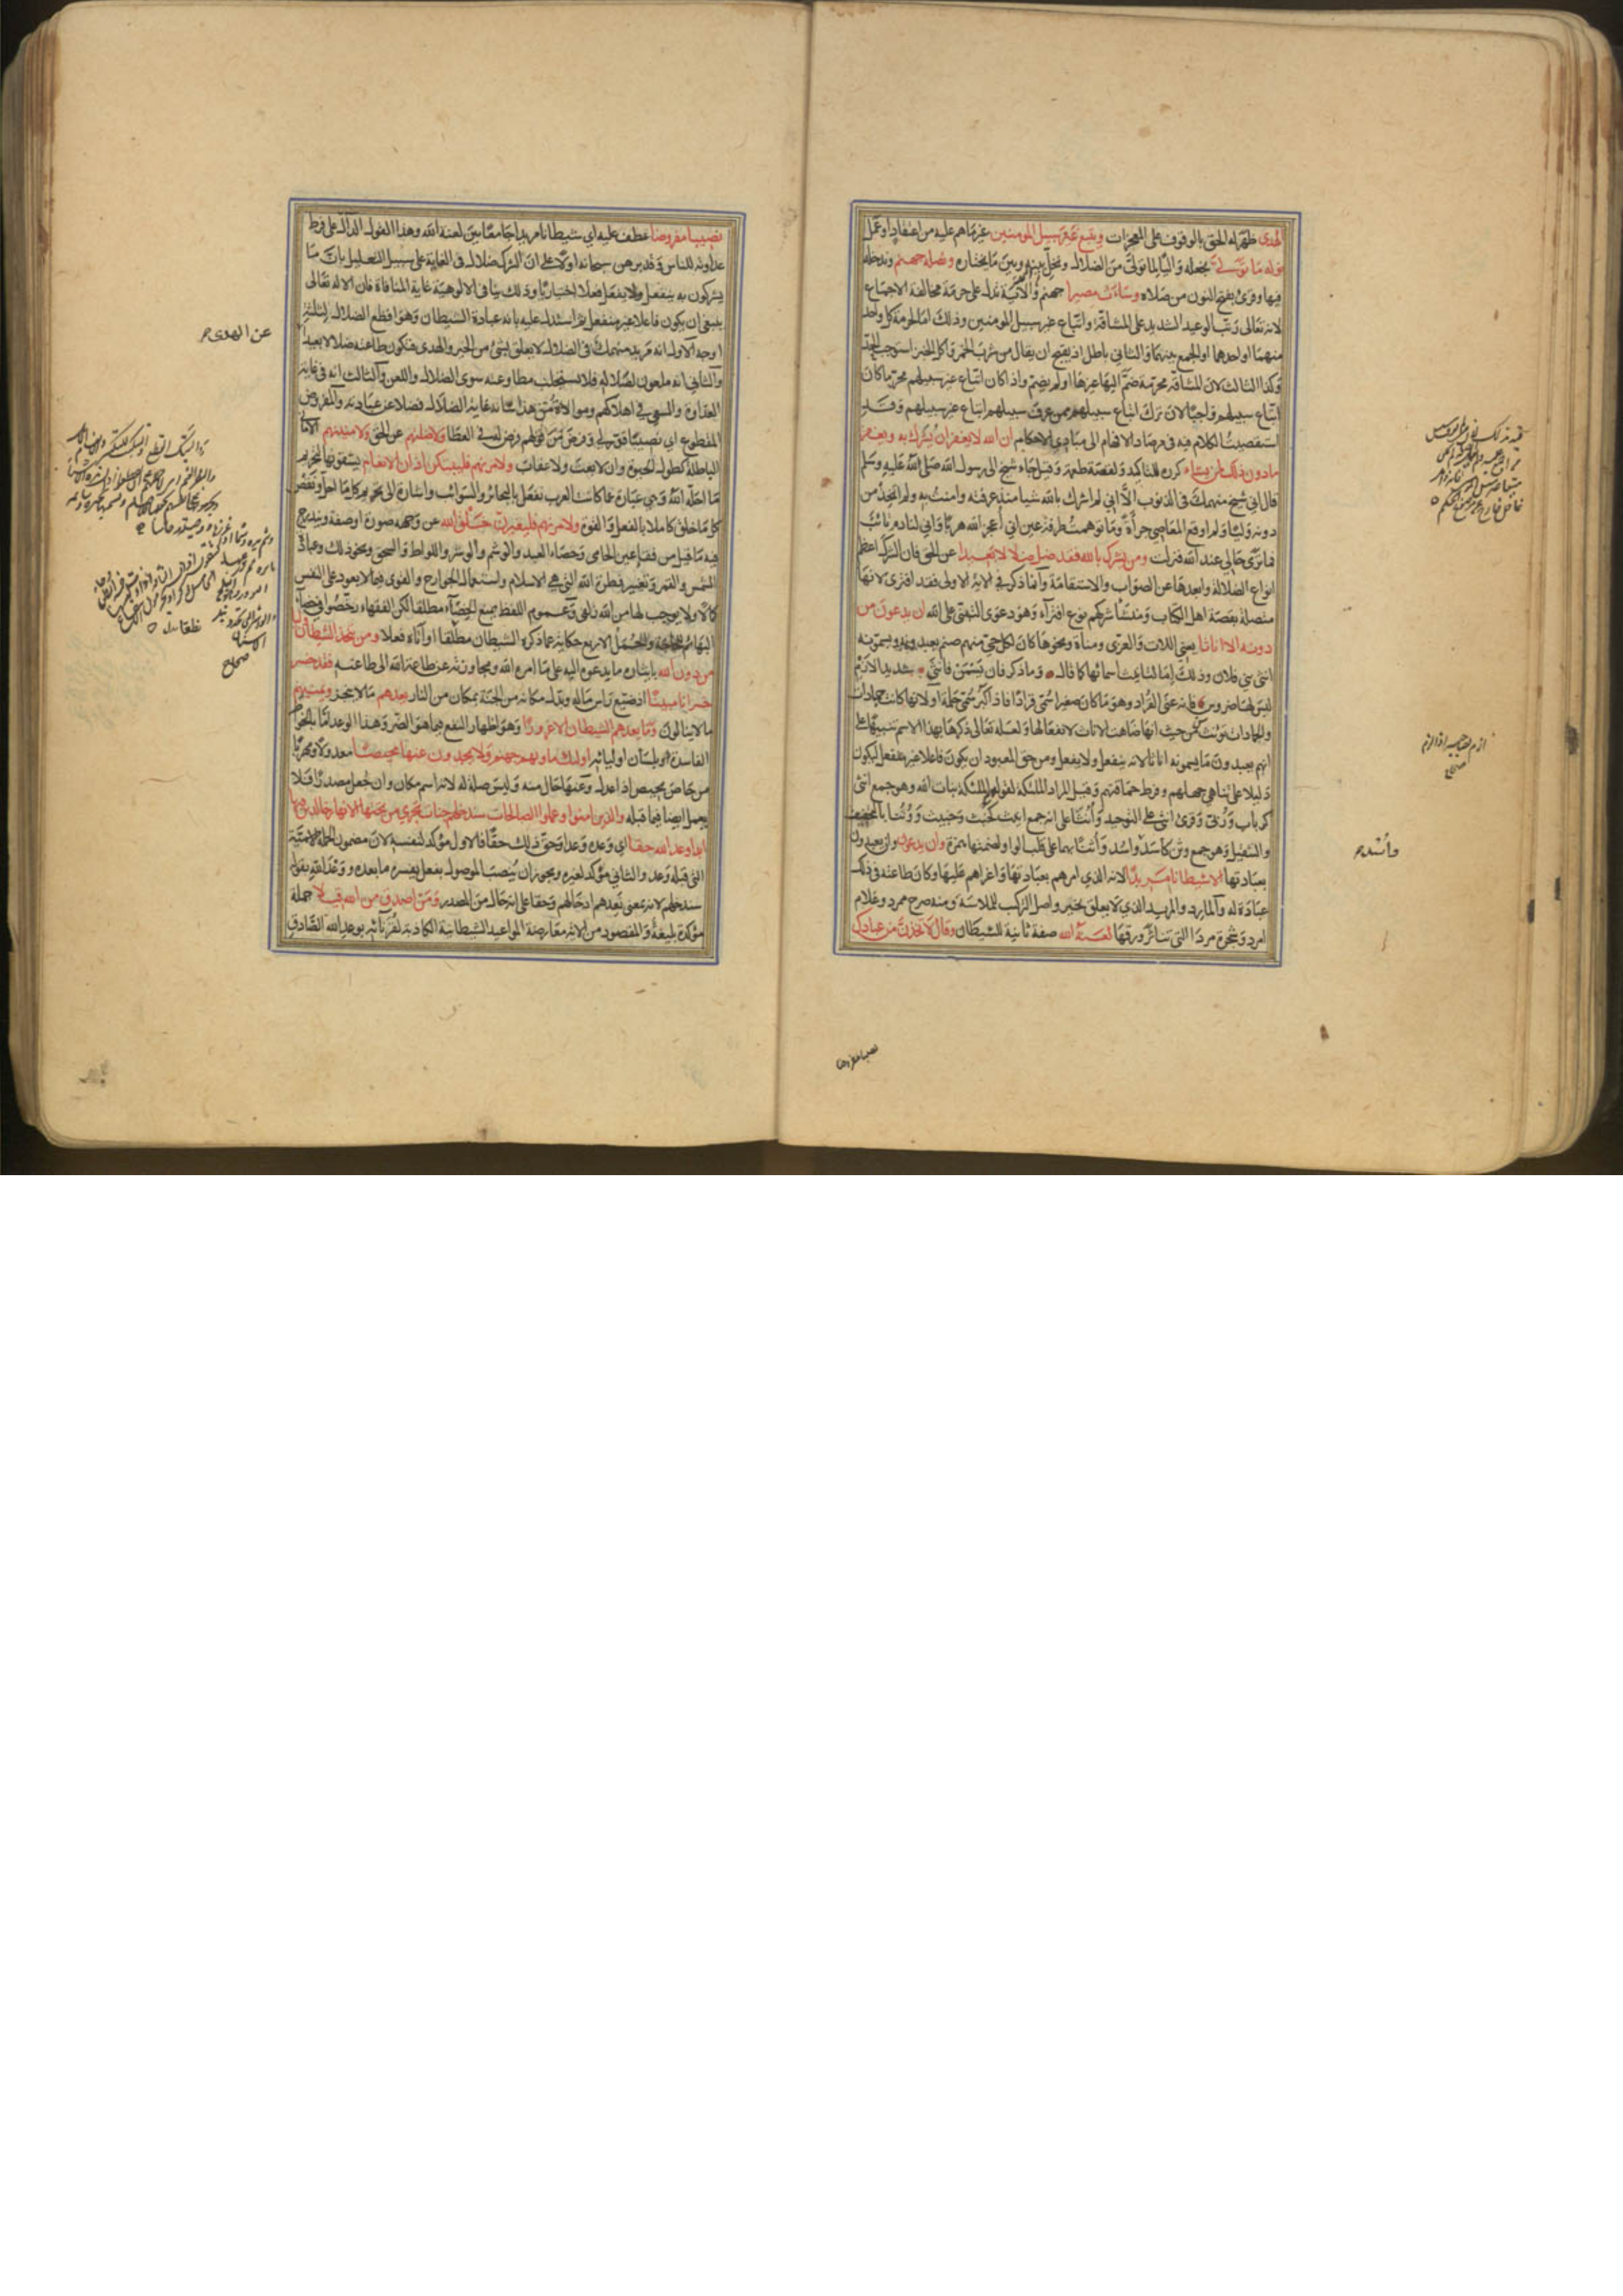 الهدى ظهر له الحق بالوقوف على المعجزات ويتبع غير سبيل المومنين غير ما هم عليه من اعتقاد او عمل
نوله ما تولى نجعله واليا لما تولى من الضلال ونخلي بينه وبين ما يختاره ونصله جهنم وندخله
فيها وقرئ بفتح النون من صلاه وساءت مصيرا جهنم والآية تدل على حرمة مخالفة الاجماع
لانه تعالى رتب الوعيد الشديد على المشاقة واتباع غير سبيل المومنين وذلك اما لحرمة كل واحد
منهما او احدهما او الجمع بينهما والثاني باطل اذ يقبح ان يقال من شرب الخمر واكل الخبز استوجب الحد
وكذا الثالث لان المشاقة محرمة ضم اليها غيرها او لم يضم واذا كان اتباع غير سبيلهم محرما كان
اتباع سبيلهم واجبا لان ترك اتباع سبيلهم ممن عرف سبيلهم اتباع غير سبيلهم وقد
استقصيت الكلام فيه في مرصاد الافهام الى مبادي الاحكام ان الله لا يغفر ان يشرك به ويغفر
ما دون ذلك لمن يشاء كرره للتاكيد او لقصة طعمة وقيل جاء شيخ الى رسول الله صلى الله عليه وسلم
قال اني شيخ منهمك في الذنوب الا اني لم اشرك بالله شيا منذ عرفته وامنت به ولم اتخذ من
دونه وليا ولم اوقع المعاصي جرأة وما توهمت طرفة عين اني أعجز الله هربا واني لنادم تائب
فما ترى حالي عند الله فنزلت ومن يشرك بالله فقد ضل ضلالا بعيدا عن الحق فان الشرك اعظم
انواع الضلالة وابعدها عن الصواب والاستقامة وانما ذكر في الآية الاولى فقد افترى لانها
متصلة بقصة اهل الكتاب ومنشأ شركهم نوع افتراء وهو دعوى التبني على الله ان يدعون من
دونه الا اناثا يعني اللات والعزى ومناة ونحوها كان لكل حي منهم صنم يعبدونه ويسمونه
انثى بني فلان وذلك اما لتأنيث اسمائها كما قال وما ذكر فان يسمن فانثى شديد الازم
ليس له ضروس فانه عنى القراد وهو ما كان صغيرا سمي قرادا فاذا كبر سمي حلمة او لانها كانت جمادات
والجمادات تؤنث من حيث انها ضاهت الاناث لانفعالها ولعله تعالى ذكرها بهذا الاسم تنبيها على
انهم يعبدون ما يسمونه اناثا لانه ينفعل ولا يفعل ومن حق المعبود ان يكون فاعلا غير منفعل ليكون
دليلا على تناهي جهلهم وفرط حماقتهم وقيل المراد الملئكة لقولهم الملئكة بنات الله وهو جمع انثى
كرباب وربى وقرئ انثى على التوحيد وأنثا على انه جمع انيث كخبث وخبيث ووثنا بالتخفيف
والتثقيل وهو جمع وثن كاسد واسد وأثنا بهما على قلب الواو لضمتها همزة وان يدعون وان يعبدون
بعبادتها الا شيطانا مريدا لانه الذي امرهم بعبادتها واغراهم عليها وكان طاعته في ذلك
عبادة له والمارد والمريد الذي لا يعلق بخير واصل التركيب للملاسة ومنه صرح ممرد وغلام
امرد وشجرة مردا التي تناثر ورقها لعنه الله صفة ثانية للشيطان وقال لاتخذن من عبادك
نصيبا مفروضا
نصيبا مفروضا عطف عليه اي شيطانا مريدا جامعا بين لعنة الله وهذا القول الدال على فرط
عداوته للناس وقد برهن سبحانه اولا على ان الشرك ضلال في الغاية على سبيل التعليل بان ما
يشركون به ينفعل ولا يفعل فعلا اختياريا وذلك ينافي الالوهية غاية المنافاة فان الاله تعالى
ينبغي ان يكون فاعلا غير منفعل ثم استدل عليه بانه عبادة الشيطان وهو افظع الضلال لثلثة
اوجه الاول انه مريد منهمك في الضلال لا يعلق بشئ من الخير والهدى فتكون طاعته ضلالا بعيدا
والثاني انه ملعون لضلاله فلا تستجلب مطاوعته سوى الضلال واللعن والثالث انه في غاية
العداوة والسعي في اهلاكهم وموالاة من هذا شانه غاية الضلال فضلا عن عبادته والمفروض
المقطوع اي نصيبا قدر لي وفرض من قولهم فرض له في العطا ولاضلنهم عن الحق ولامنينهم الاماني
الباطلة كطول الحيوة وان لا بعث ولا عقاب ولآمرنهم فليبتكن اذان الانعام يشقونها لتحريم
ما احله الله وهي عبارة عما كانت العرب تفعل بالبحائر والسوائب واشارة الى تحريم كل ما احل ونقص
كل ما خلق كاملا بالفعل او القوة ولامرنهم فليغيرن خلق الله عن وجهه صورة او صفة ويندرج
فيه ما قيل من فقإ عين الحامى وخصاء العبيد والوشم والوشر واللواط والسحق ونحو ذلك وعبادة
الشمس والقمر وتغيير فطرة الله التي هي الاسلام واستعمال الجوارح والقوى فيما لا يعود على النفس
كمالا ولا يوجب لها من الله زلفى وعموم اللفظ يمنع الخصاء مطلقا لكن الفقهاء رخصوا في خصاء
البهائم للحاجة والجمل الاربع حكاية عما ذكره الشيطان مطلقا او اتاه فعلا ومن يتخذ الشيطان وليا
من دون الله بايثاره ما يدعوه اليه على ما امره الله ومجاوزته عن طاعة الله الى طاعته فقد خسر
خسرانا مبينا اذ ضيع رأس ماله وبدل مكانه من الجنة بمكان من النار يعدهم ما لا ينجز ويمنيهم
ما لا ينالون وما يعدهم الشيطان الا غرورا وهو اظهار النفع فيما هو الضر وهذا الوعد اما بالخواطر
الفاسدة او بلسان اوليائه اولئك ماويهم جهنم ولا يجدون عنها محيصا معدلا ومهربا
من حاص يحيص اذا عدل وعنها حال منه وليس صلة له لانه اسم مكان وان جعل مصدرا فلا
يعمل ايضا فيما قبله والذين امنوا وعملوا الصالحات سندخلهم جنات تجري من تحتها الانهار خالدين فيها
ابدا وعد الله حقا اي وعده وعدا وحق ذلك حقا فالاول مؤكد لنفسه لان مضمون الجملة الاسمية
التي قبله وعد والثاني مؤكد لغيره ويجوز ان ينصب الموصول بفعل يفسره ما بعده ووعد الله بقوله
سندخلهم لانه بمعنى نعدهم ادخالهم وحقا على انه حال من المصدر ومن اصدق من الله قيلا جملة
مؤكدة بليغة والمقصود من الآية معارضة المواعيد الشيطانية الكاذبة لقرنائه بوعد الله الصادق
عن الهدى